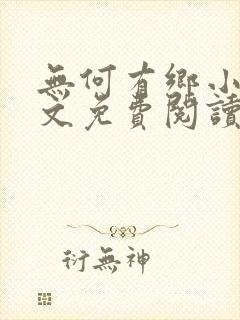 無何有鄉小
文免費閱讀
衍無神